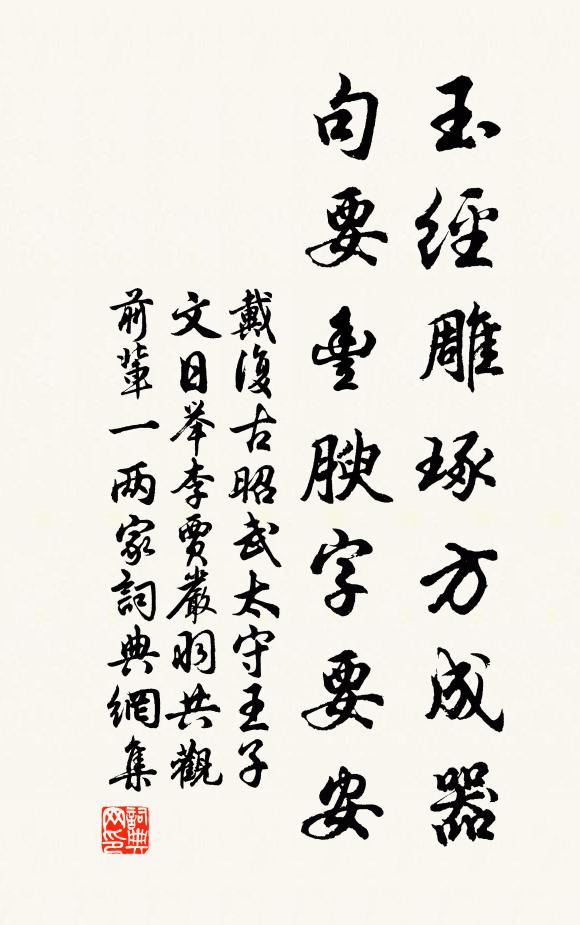 玉經雕琢方成器
句要豐腴字要安
戴復古昭武太守王子
文日举李賈嚴羽共觀
前輩一两家詞典網集
詞典
网印